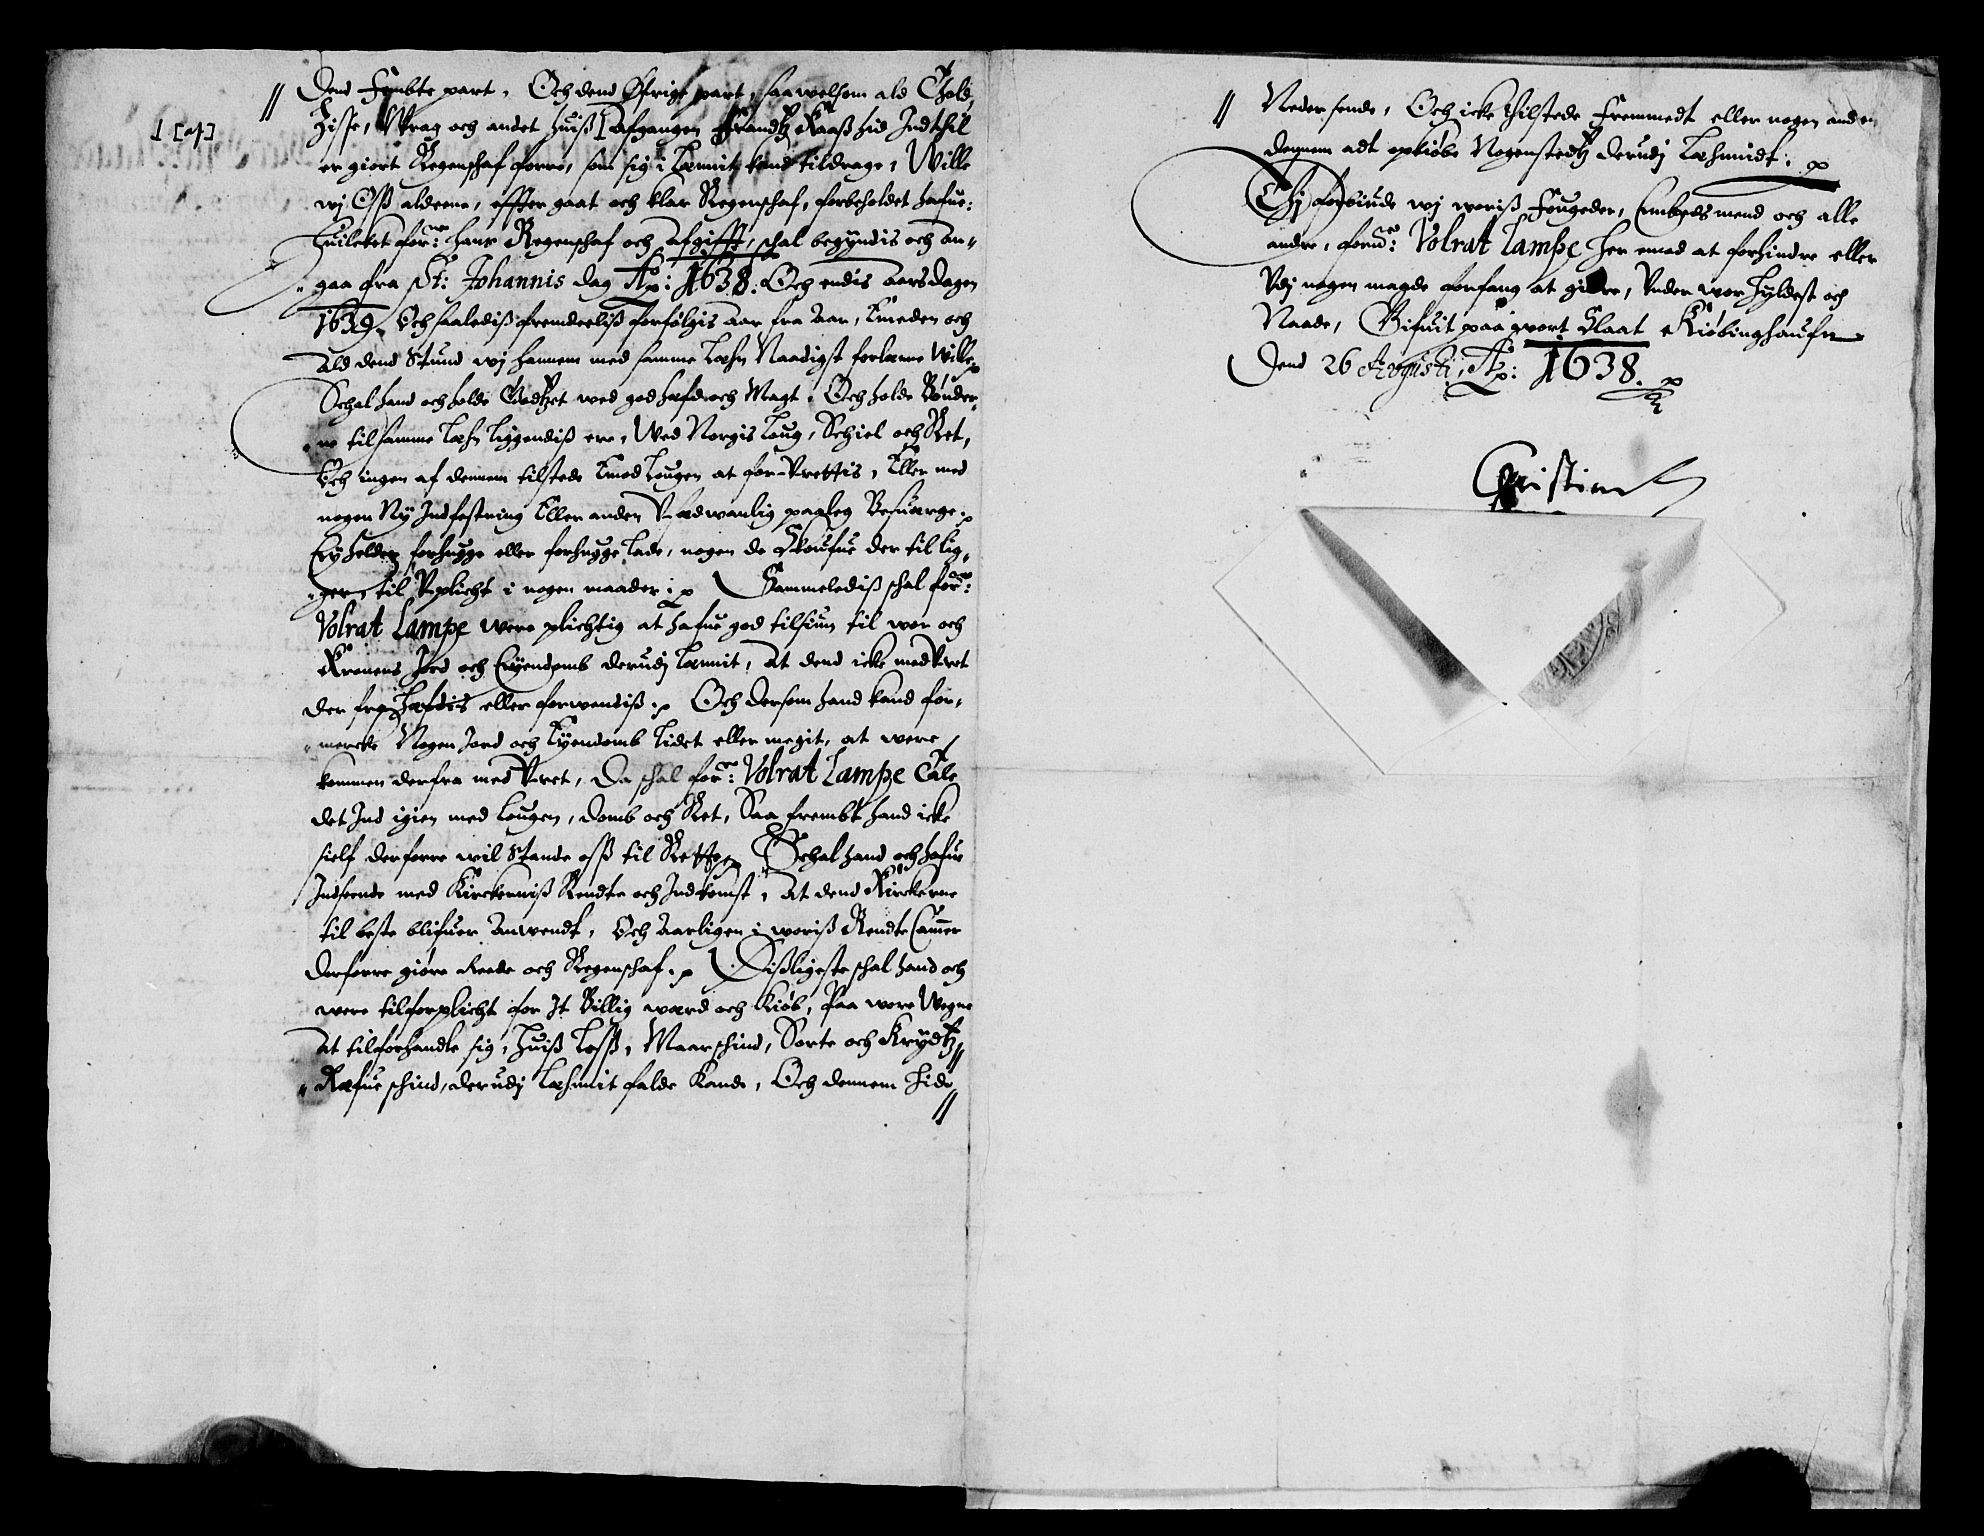 1 [af]
// Dend Fembte part. Och dend Øfrige part, saa welsom ald Thold,
Zisse, Wrag och andet huiß [afgangen Frandtz Kaaß hid Indthil
er giort Regenschaf forre, som sig i Lænnit kand tildrage, Wille
wj Oß aldeene, effter gaat och klar Regenschaf, forbeholdet hafue:
Huilcket forne: hans Regenschaf och afgifft, schal begyndis och an-
gaa fra St: Johannis dag Ao: 1638. Och endis aarsdagen
1639. Och saalediß fremdeeliß forfølgis aar fra Aar, Emeden och
Ald dend Stund wj hannem med samme Lehn Naadigst forlenne Wille.
Schal hand och holde Godtzet wed god hæfd och Magt. Och holde Bønder-
ne til samme Lehn liggendiß ere, Wed Norgis Loug, Schiel och Ret,
Och ingen af dennem tilstede Emod Lougen at for-Vrettis, Eller med
nogen Ny Indfestning Eller anden V-sedwanlig paaleg Besuærge.
Ey helder forhugge eller forhugge lade, nogen de Skoufue der til lig-
ger, til Vplicht i nogen maader. Sammelediß schal forne:
Volrat Lampe were plichtig at hafue god tilsiun til wor och
Kronens Jord och Eyendomb derudj Lænnit, At dend icke med Vret
der fra hæfdis eller forwendiß. Och dersom hand kand for-
mercke Nogen Jord och Eyendomb Lidet eller megit, at were
kommen derfra med Vret, Da schal forne: Volrat Lampe Tale
det Ind igien med Lougen, Domb och Ret, Saa frembt hand icke
sielf derforre wil Stande oß til Rette. Schal hand och hafue
Indseende med Kirckerniß Rendte och Indkomst, At dend Kirckerne
til beste blifuer Anwendt, Och Aarligen i woriß Rendte Cammer
derforre giøre Reede och Regenschaf. Dißligeste schal hand och
were tilforplicht for It Billig wærd och Kiøb, Paa wore Wegne
At tilforhandle sig, huiß Loß, Maarschind, Sorte och Krydtz
Ræfue schind, derudj Lehnnit falde Kande, Och dennem hid
//
// Neder sende, Och icke Thilstede Fremmedt eller nogen anden
dennem adt opkiøbe Nogenstedtz derudj Lehnnidt.
Thj forbiude wj woriß Fougeder, Embedsmend och alle
andre, forne: Volrat Lampe her emod at forhindre eller
Vdj nogen maade forfang at giøre, Vnder wor Hyldest och
Naade, Gifuit paa wort Slaat Kiøbinghaufn
Dend 26 Avgusti, Ao: 1638.
Christian